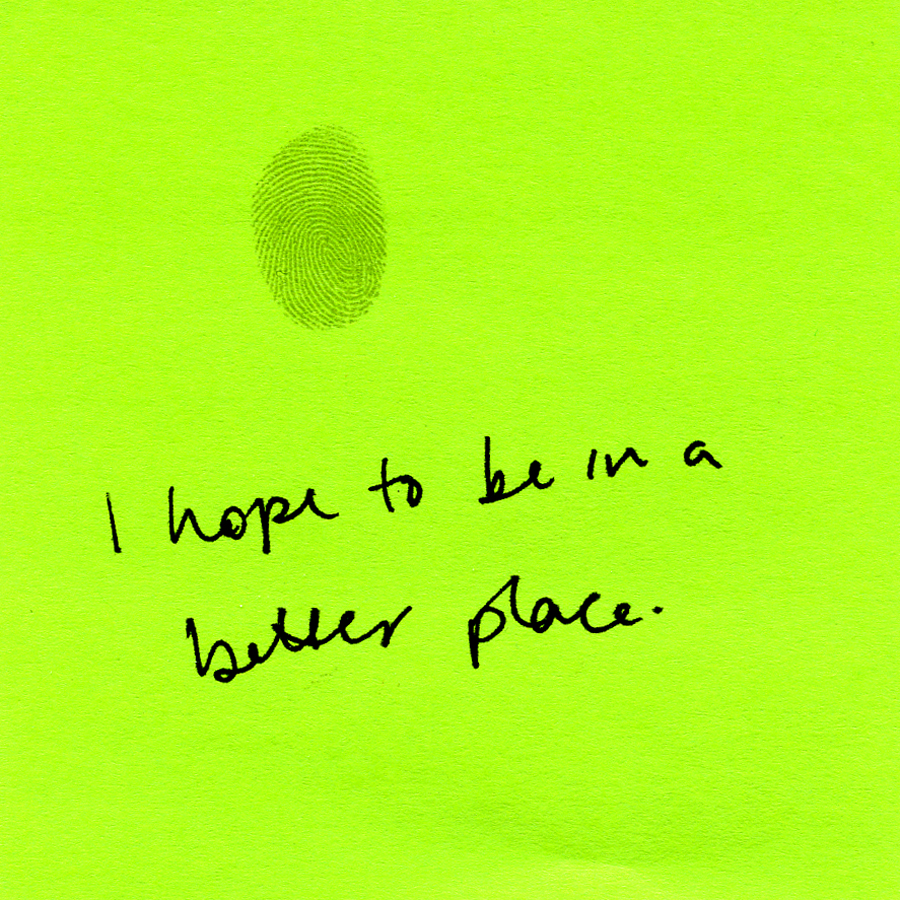 I hope to be in a
better place.